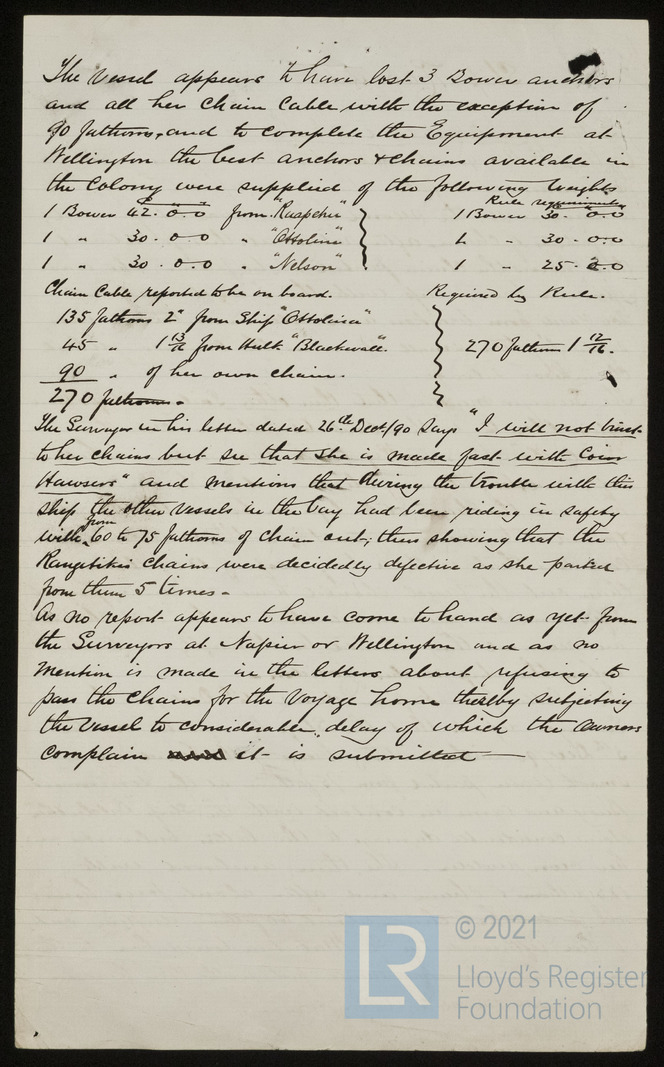 The Vessel appears to have lost 3 Bower anchors
and all her Chain Cable with the exception of
90 fathoms, and to complete the Equipment at
Wellington the best anchors & chains available in
the Colony were supplied of the following weights
Rule requirements
1 Bower 42.0.0 from "Ruapehu" 1 Bower 30.0.0
1 " 30.0.0 " "Ottolina" 1 " 30.0.0
1 " 30.0.0 " "Nelson" 1 " 25.2.0
Chain Cable reported to be on board. Required by Rule.
135 fathoms 2" from Ship "Ottolina"
45 " 1 13/16 from Hulk "Blackwall". 270 fathoms 1 12/16.
90 " of her own chain.
270 fathoms.
The Surveyor in his letter dated 26th Dect/90 Says "I will not trust
to her chains but see that she is made fast with Coir
Hawsers" and mentions that during the trouble with this
ship the other vessels in the bay had been riding in safety
with from 60 to 75 fathoms of chain out; thus showing that the
Rangitikis chains were decidedly defective as she parted
from them 5 times.
As no report appears to have come to hand as yet from
the Surveyors at Napier or Wellington and as no
mention is made in the letters about refusing to
pass the chains for the voyage home thereby subjecting
the vessel to considerable delay of which the Owners
complain it is submitted
LR
© 2021
Lloyd's Register
Foundation